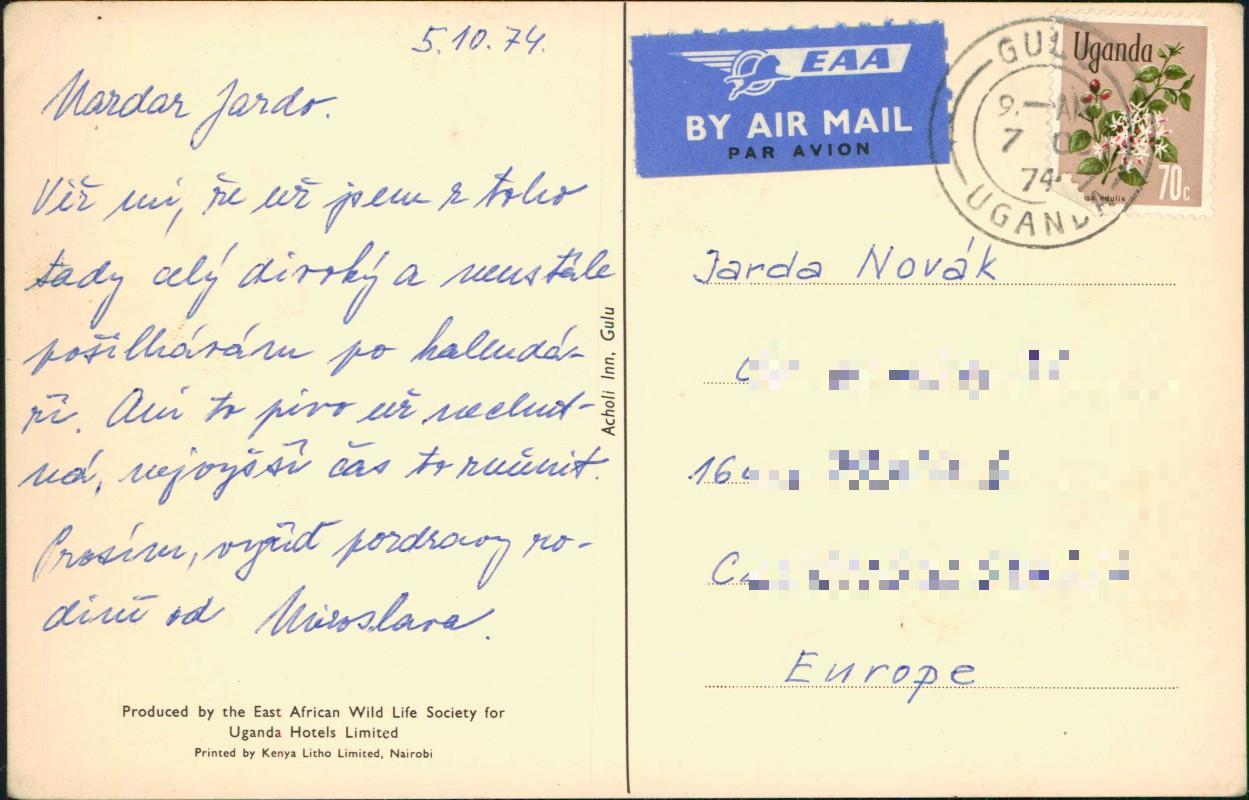 5.10.74.
Nazdar Jardo.
Věř mi, že už jsem z toho
tady celý divoký a neustále
pošilhávám po kalendá-
ři. Ani to pivo už nechut-
ná, nejvyšší čas to změnit.
Prosím, vyřiď pozdravy ro-
dině od Miroslava.
Acholi Inn, Gulu
Produced by the East African Wild Life Society for
Uganda Hotels Limited
Printed by Kenya Litho Limited, Nairobi
EAA
BY AIR MAIL
PAR AVION
GUL
9.—AM
7 OC
74
UGANDA
Uganda
70c
edulis
Jarda Novák
Europe